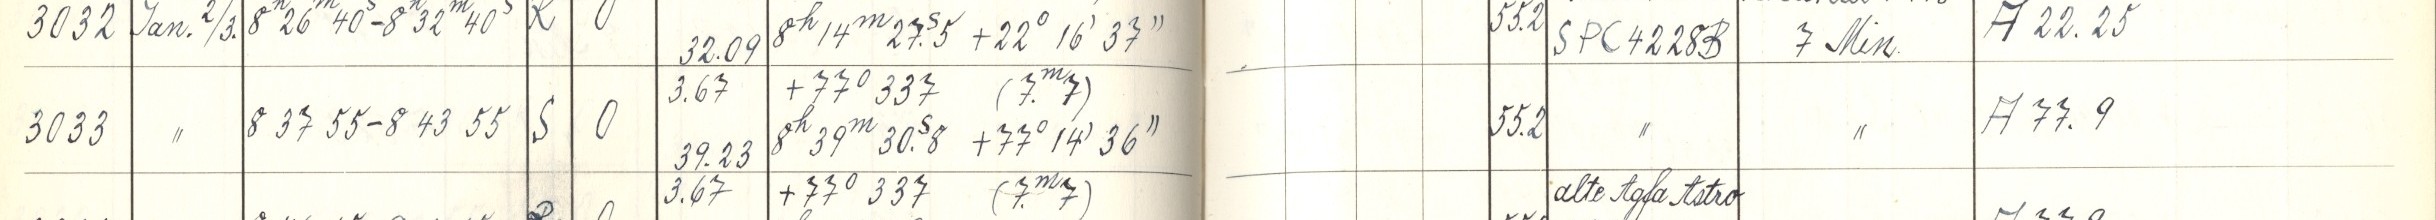 3032 Jan. 2/3. 8h 26m 40s-8h 32m 40s R 0 32.09 8h 14m 27.s5 +22° 16' 37" 55.2 SPC4228B 7 Min. A 22.25
3.67 +77° 337 (7.m7)
3033 " 8 37 55-8 43 55 S 0 39.23 8h 39m 30.s8 +77° 14' 36" 55.2 " " A 77.9
3.67 +77° 337 (7.m7) alte Agfa Astro